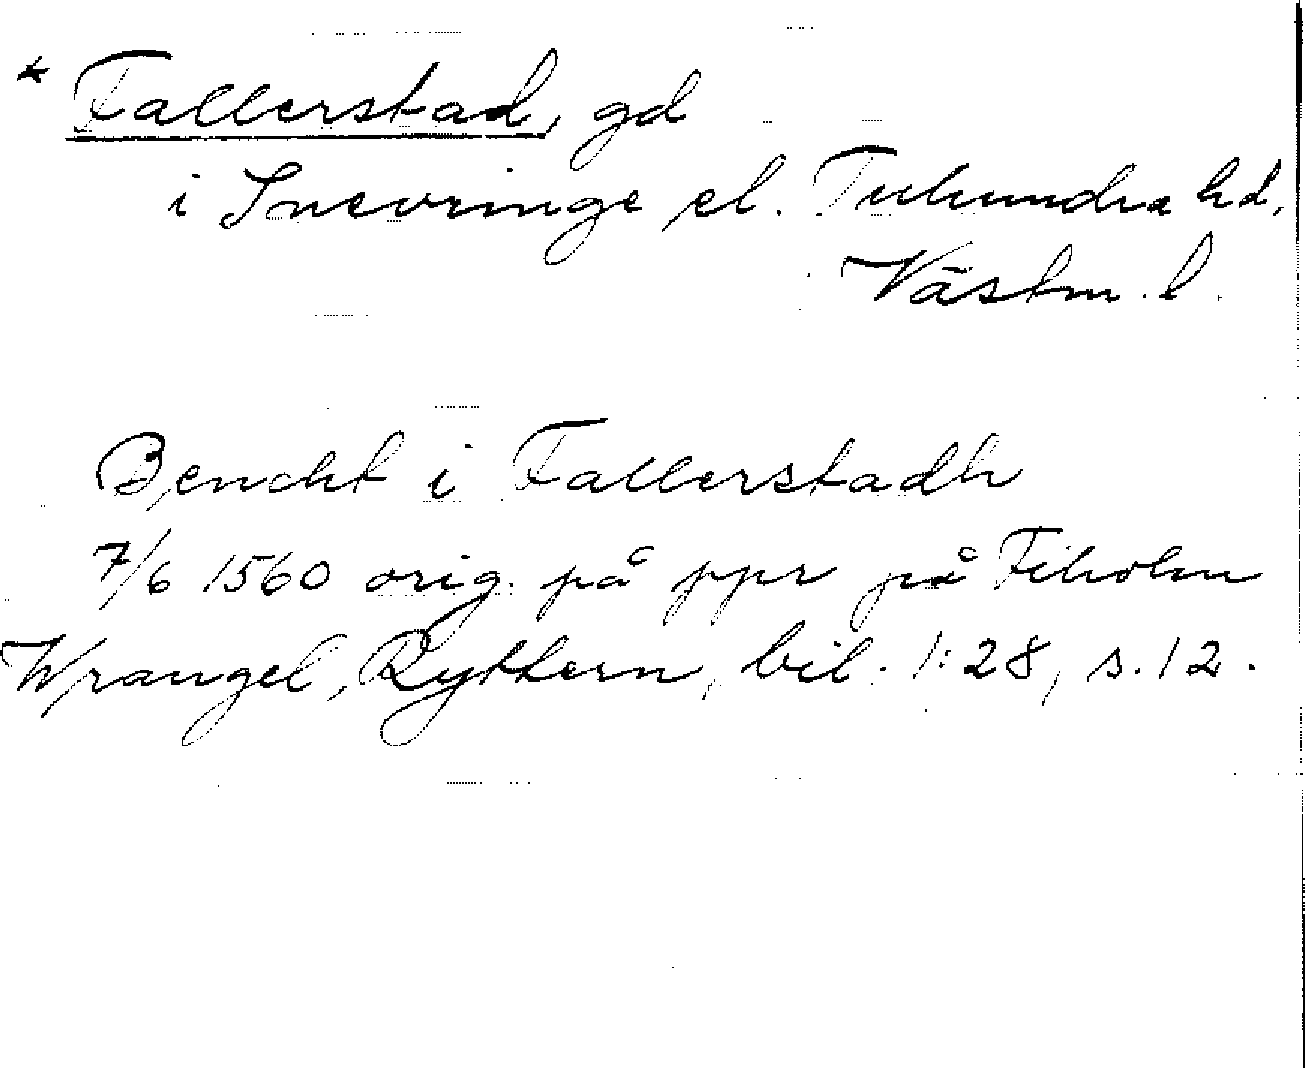 * Fallerstad, gd
i Snevringe el. Tuhundra hd,
Västm. l.
Bencht i Fallerstadh
7/6 1560 orig. på ppr på Fiholm
Wrangel, Ryttern, bil. 1:28, s. 12.